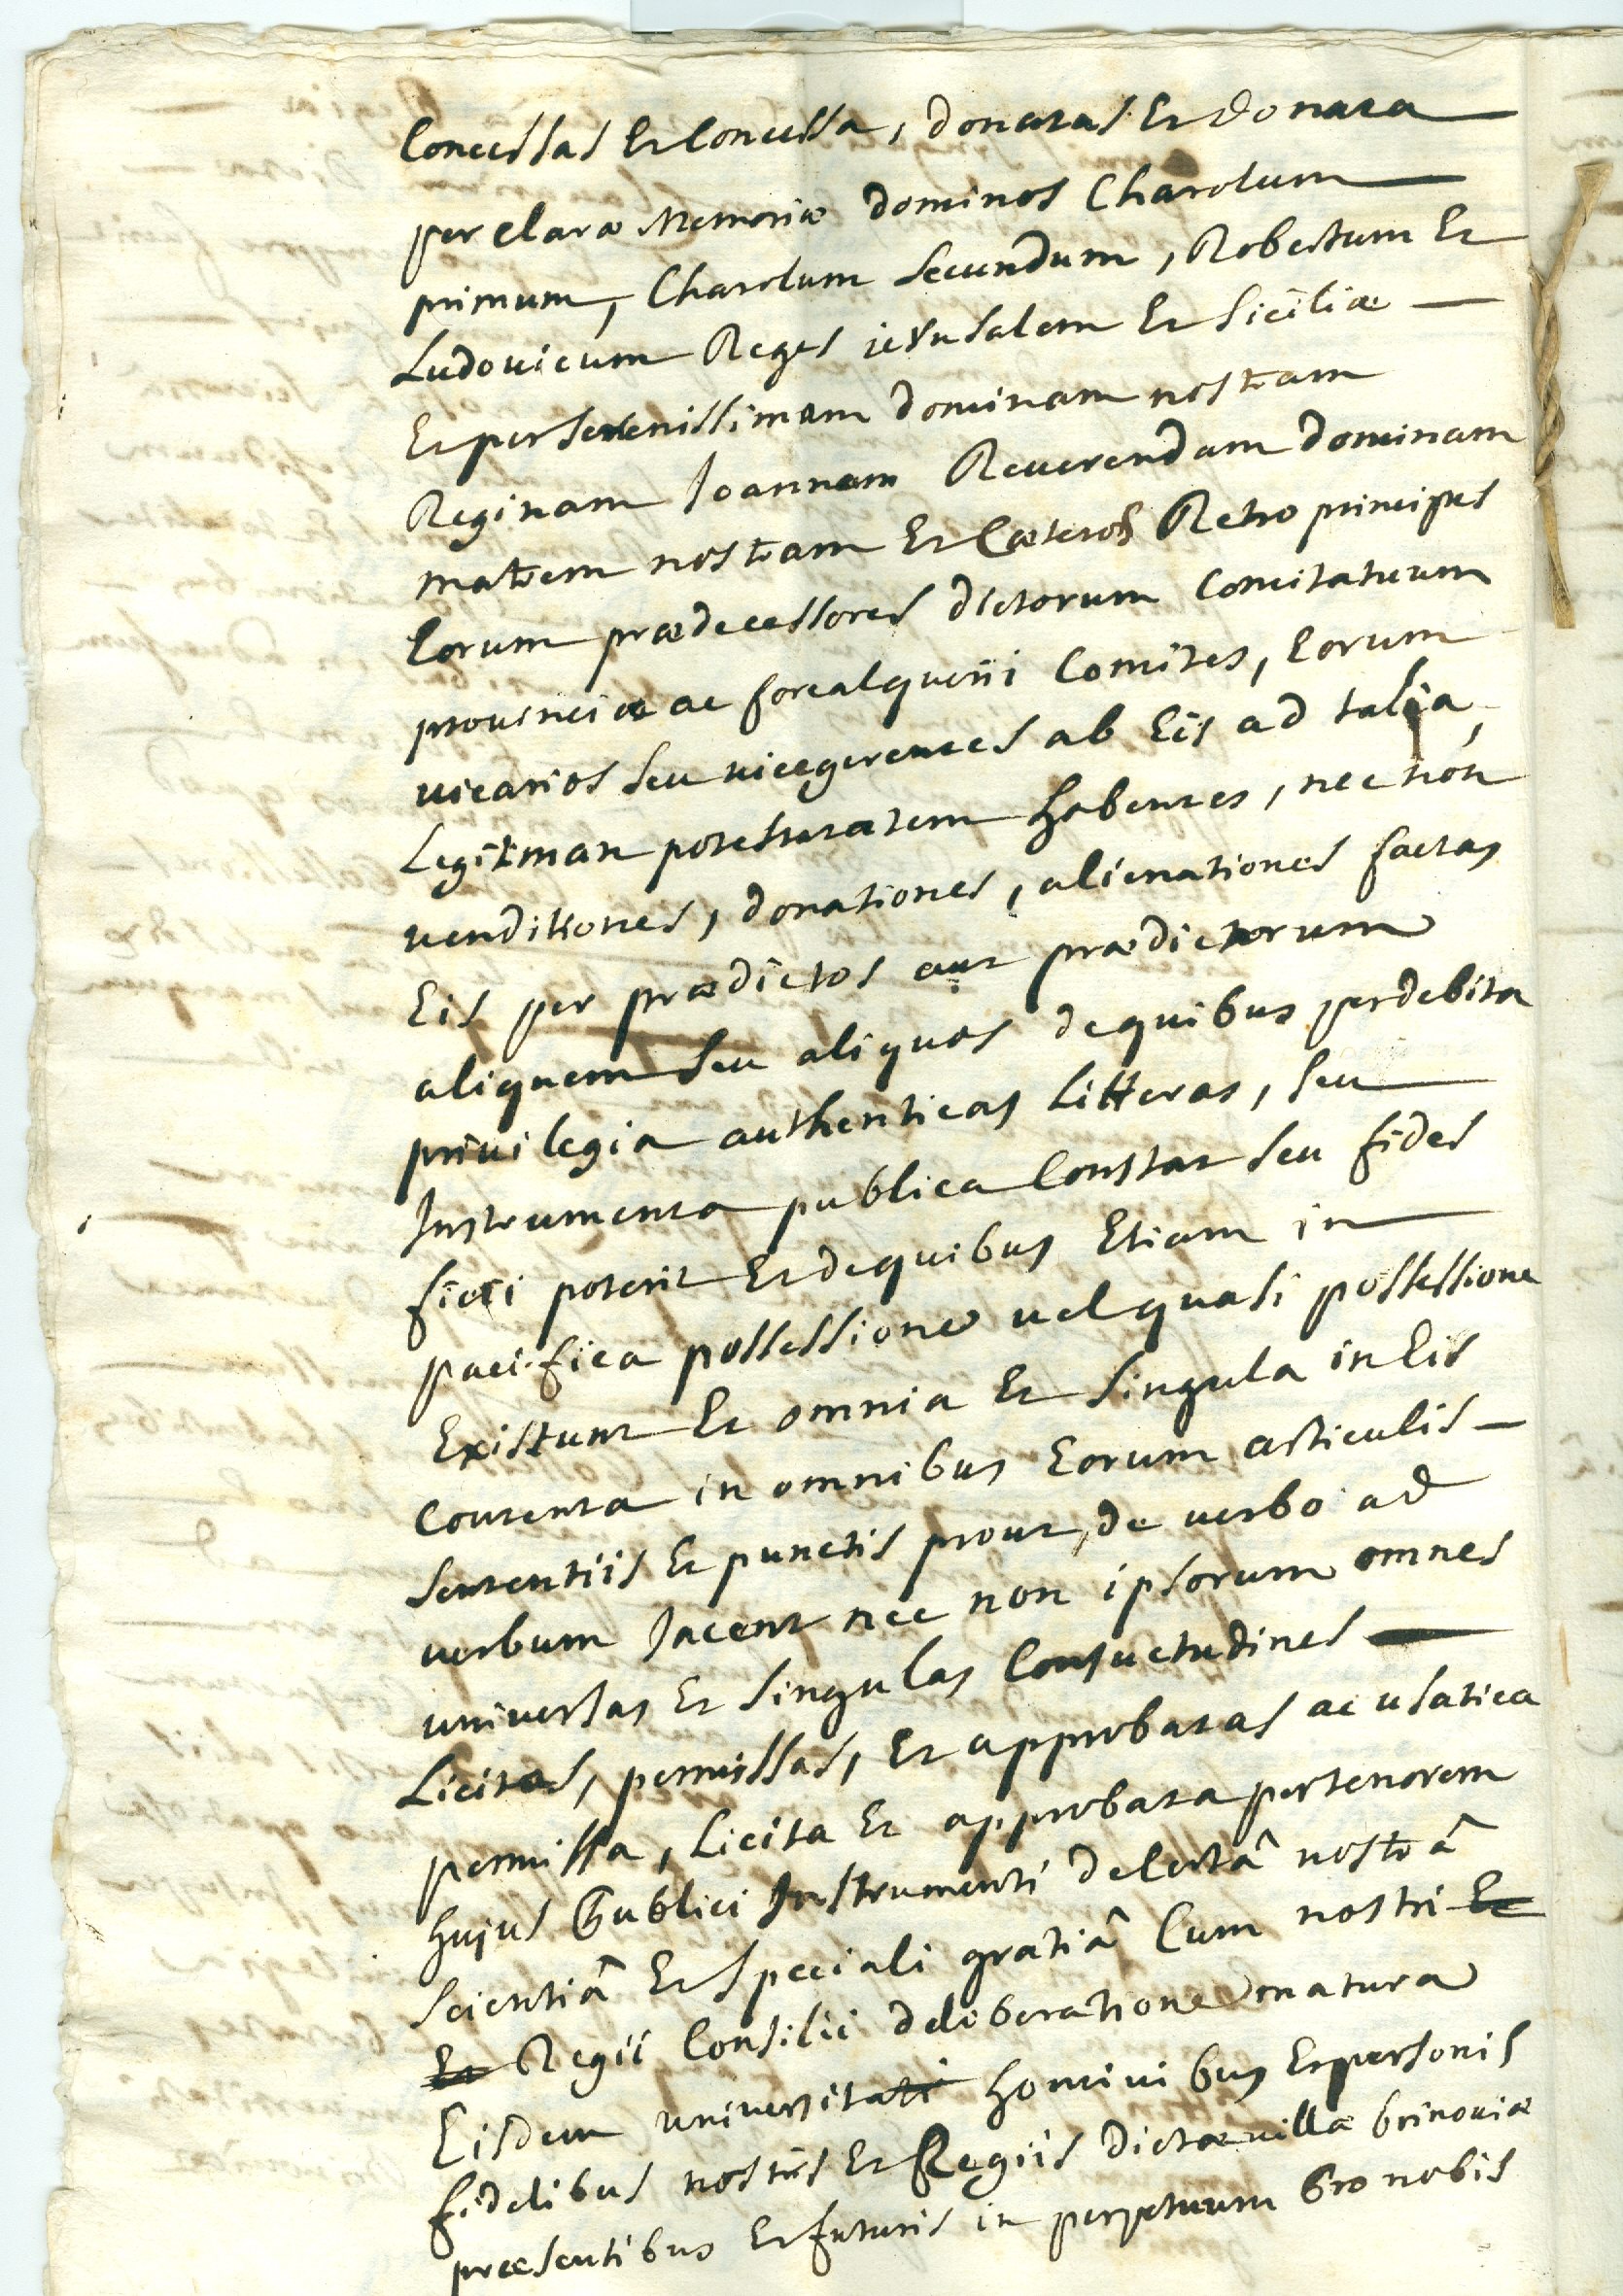 Concessas Et Concessa, donatas Et donata
per claræ Memoriæ dominos Charolum
primum, Charolum Secundum, Robertum Et
Ludovicum Reges ierusalem Et Siciliæ
Et per Serenissimam dominam nostram
Reginam Joannam Reuerendam dominam
matrem nostram Et Cæteros Retro principes
Eorum prædecessores dictorum Comitatuum
prouinciæ ac forcalquerii Comites, Eorum
uicarios Seu uicegerentes ab Eis ad talia,
Legitiman potestatem habentes, nec non
uenditiones, donationes, alienationes factas
Eis per prædictos aut prædictorum
aliquem Seu aliquos de quibus per debita
priuilegia authenticas Litteras, Seu
Instrumenta publica Constat Seu fides
fieri poterit Et de quibus Etiam in
pacifica possessione uel quasi possessione
Existunt Et omnia Et Singula in Eis
Contenta in omnibus Eorum articulis
Sententiis Et punctis prout, de uerbo ad
uerbum Jacent nec non ipsorum omnes
uniuersas Et Singulas Consuetudines
Licitas, permissas, Et approbatas ac usatica
permissa, Licita Et approbata per tenorem
hujus Publici Instrumenti de Certâ nostrâ
Scientiâ Et Speciali gratiâ Cum nostri Et
Et Regii Consilii deliberatione matura
Eisdem uniuersitati hominibus Et personis
fidelibus nostris Et Regiis dictæ uillæ brinoniæ
præsentibus Et futuris in perpetuum Pro nobis